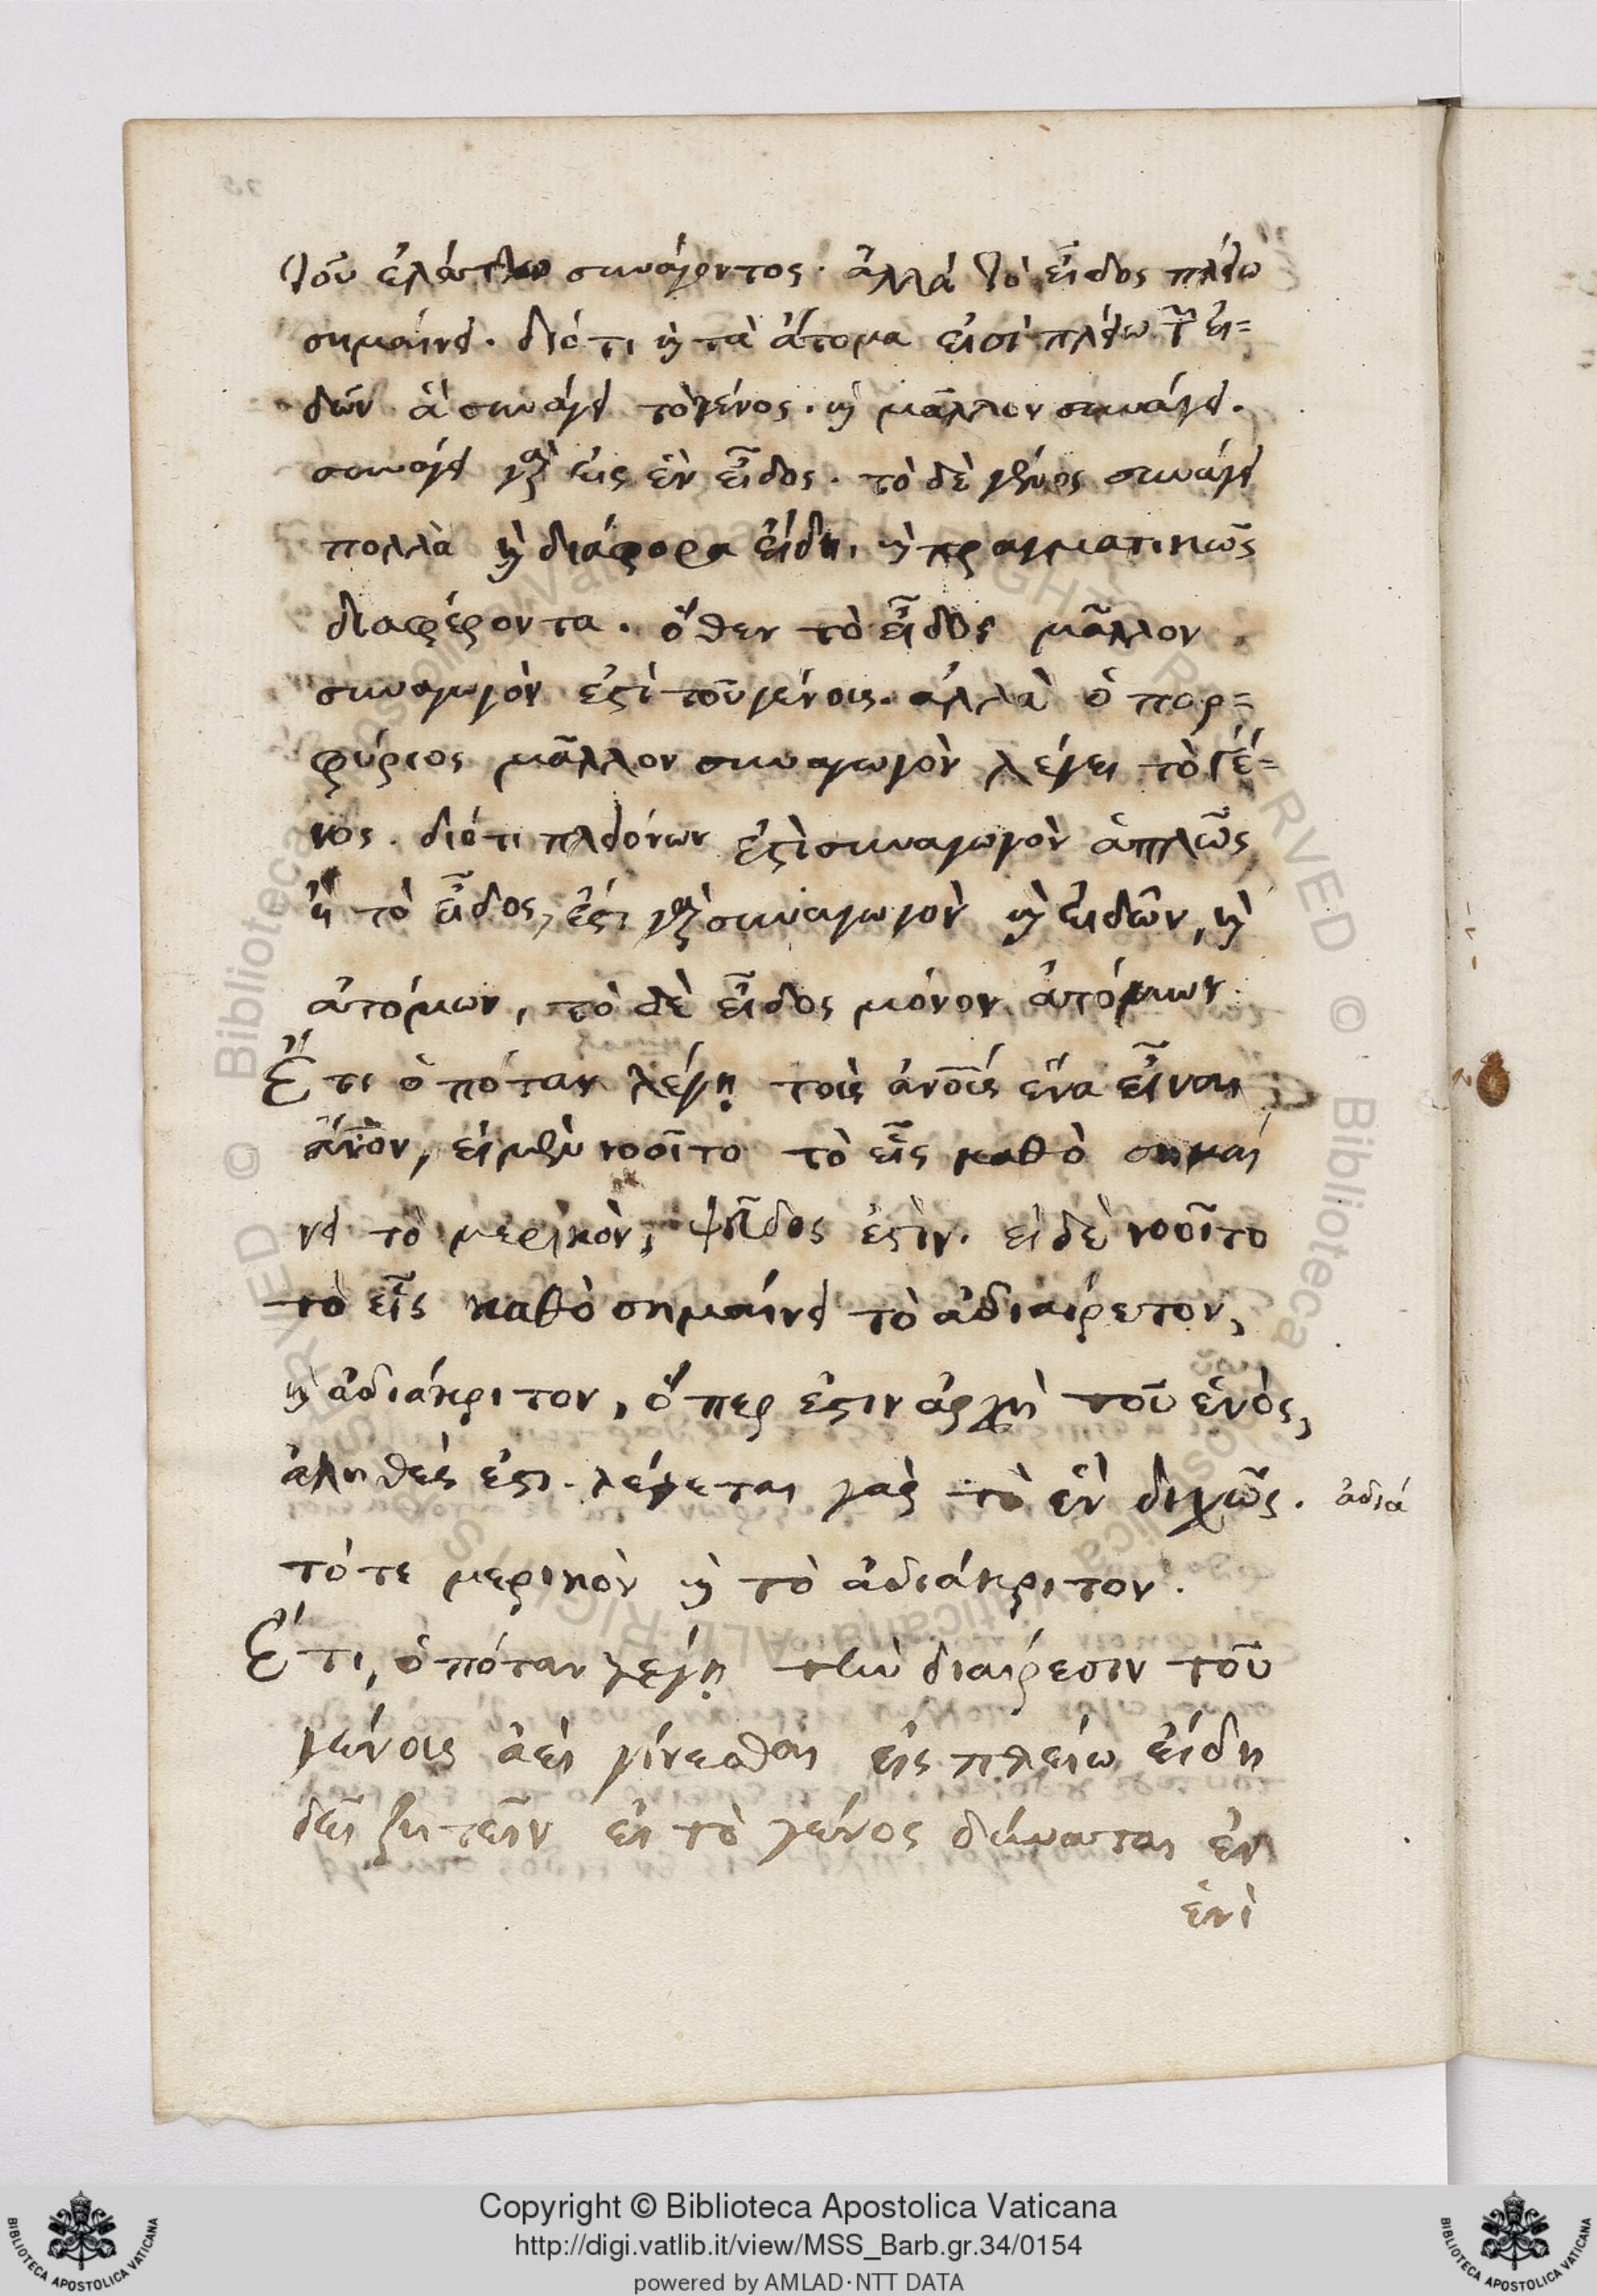 τοῦ ἐλάττω συνάγοντος. ἀλλὰ τὸ εἶδος πλείω
σημαίνει. διότι ϗ τὰ ἄτομα εἰσὶ πλείω τῶν εἰ=
δῶν ἃ συνάγει τὸ γένος. ϗ μᾶλλον συνάγει.
συνάγει γὰρ εἰς ἓν εἶδος. τὸ δὲ γένος συνάγει
πολλὰ ϗ διάφορα εἴδη, ϗ πραγματικῶς
διαφέροντα. ὅθεν τὸ εἶδος μᾶλλον
συναγωγὸν ἐστὶ τοῦ γένους. ἀλλὰ ὁ πορ=
φύριος μᾶλλον συναγωγὸν λέγει τὸ γέ=
νος. διότι πλειόνων ἐστὶ συναγωγὸν ἁπλῶς
ἢ τὸ εἶδος, ἔστι γὰρ συναγωγὸν ϗ εἰδῶν, ϗ
ἀτόμων, τὸ δὲ εἶδος μόνον ἀτόμων.
Ἔτι ὁπόταν λέγῃ τοὺς ἀνους ἕνα εἶναι
ἄνον, εἰ μὲν νοοῖτο τὸ εἷς καθὸ σημαί
νει τὸ μερικὸν, ψεῦδος ἐστὶν. εἰ δὲ νοοῖτο
τὸ εἷς καθὸ σημαίνει τὸ ἀδιαίρετον,
ϗ ἀδιάκριτον, ὅπερ ἐστιν ἀρχὴ τοῦ ἑνὸς,
ἀληθές ἐστι. λέγεται γὰρ τὸ ἓν διχῶς. ἀδιά
τό τε μερικὸν ϗ τὸ ἀδιάκριτον.
Ἔτι, ὁπόταν λέγῃ τὴν διαίρεσιν τοῦ
γένους ἀεὶ γίνεσθαι εἰς πλείω εἴδη
δεῖ ζητεῖν εἰ τὸ γένος δύναται ἐν
ἑνὶ
Copyright © Biblioteca Apostolica Vaticana
http://digi.vatlib.it/view/MSS_Barb.gr.34/0154
powered by AMLAD·NTT DATA
BIBLIOTECA APOSTOLICA VATICANA
BIBLIOTECA APOSTOLICA VATICANA